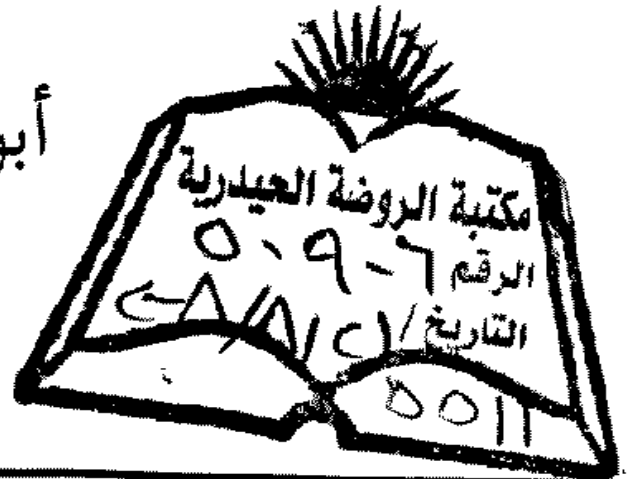 أبو
مكتبة الروضة الحيدرية
الرقم ٦-٥٠٩
التاريخ
٥٥١١